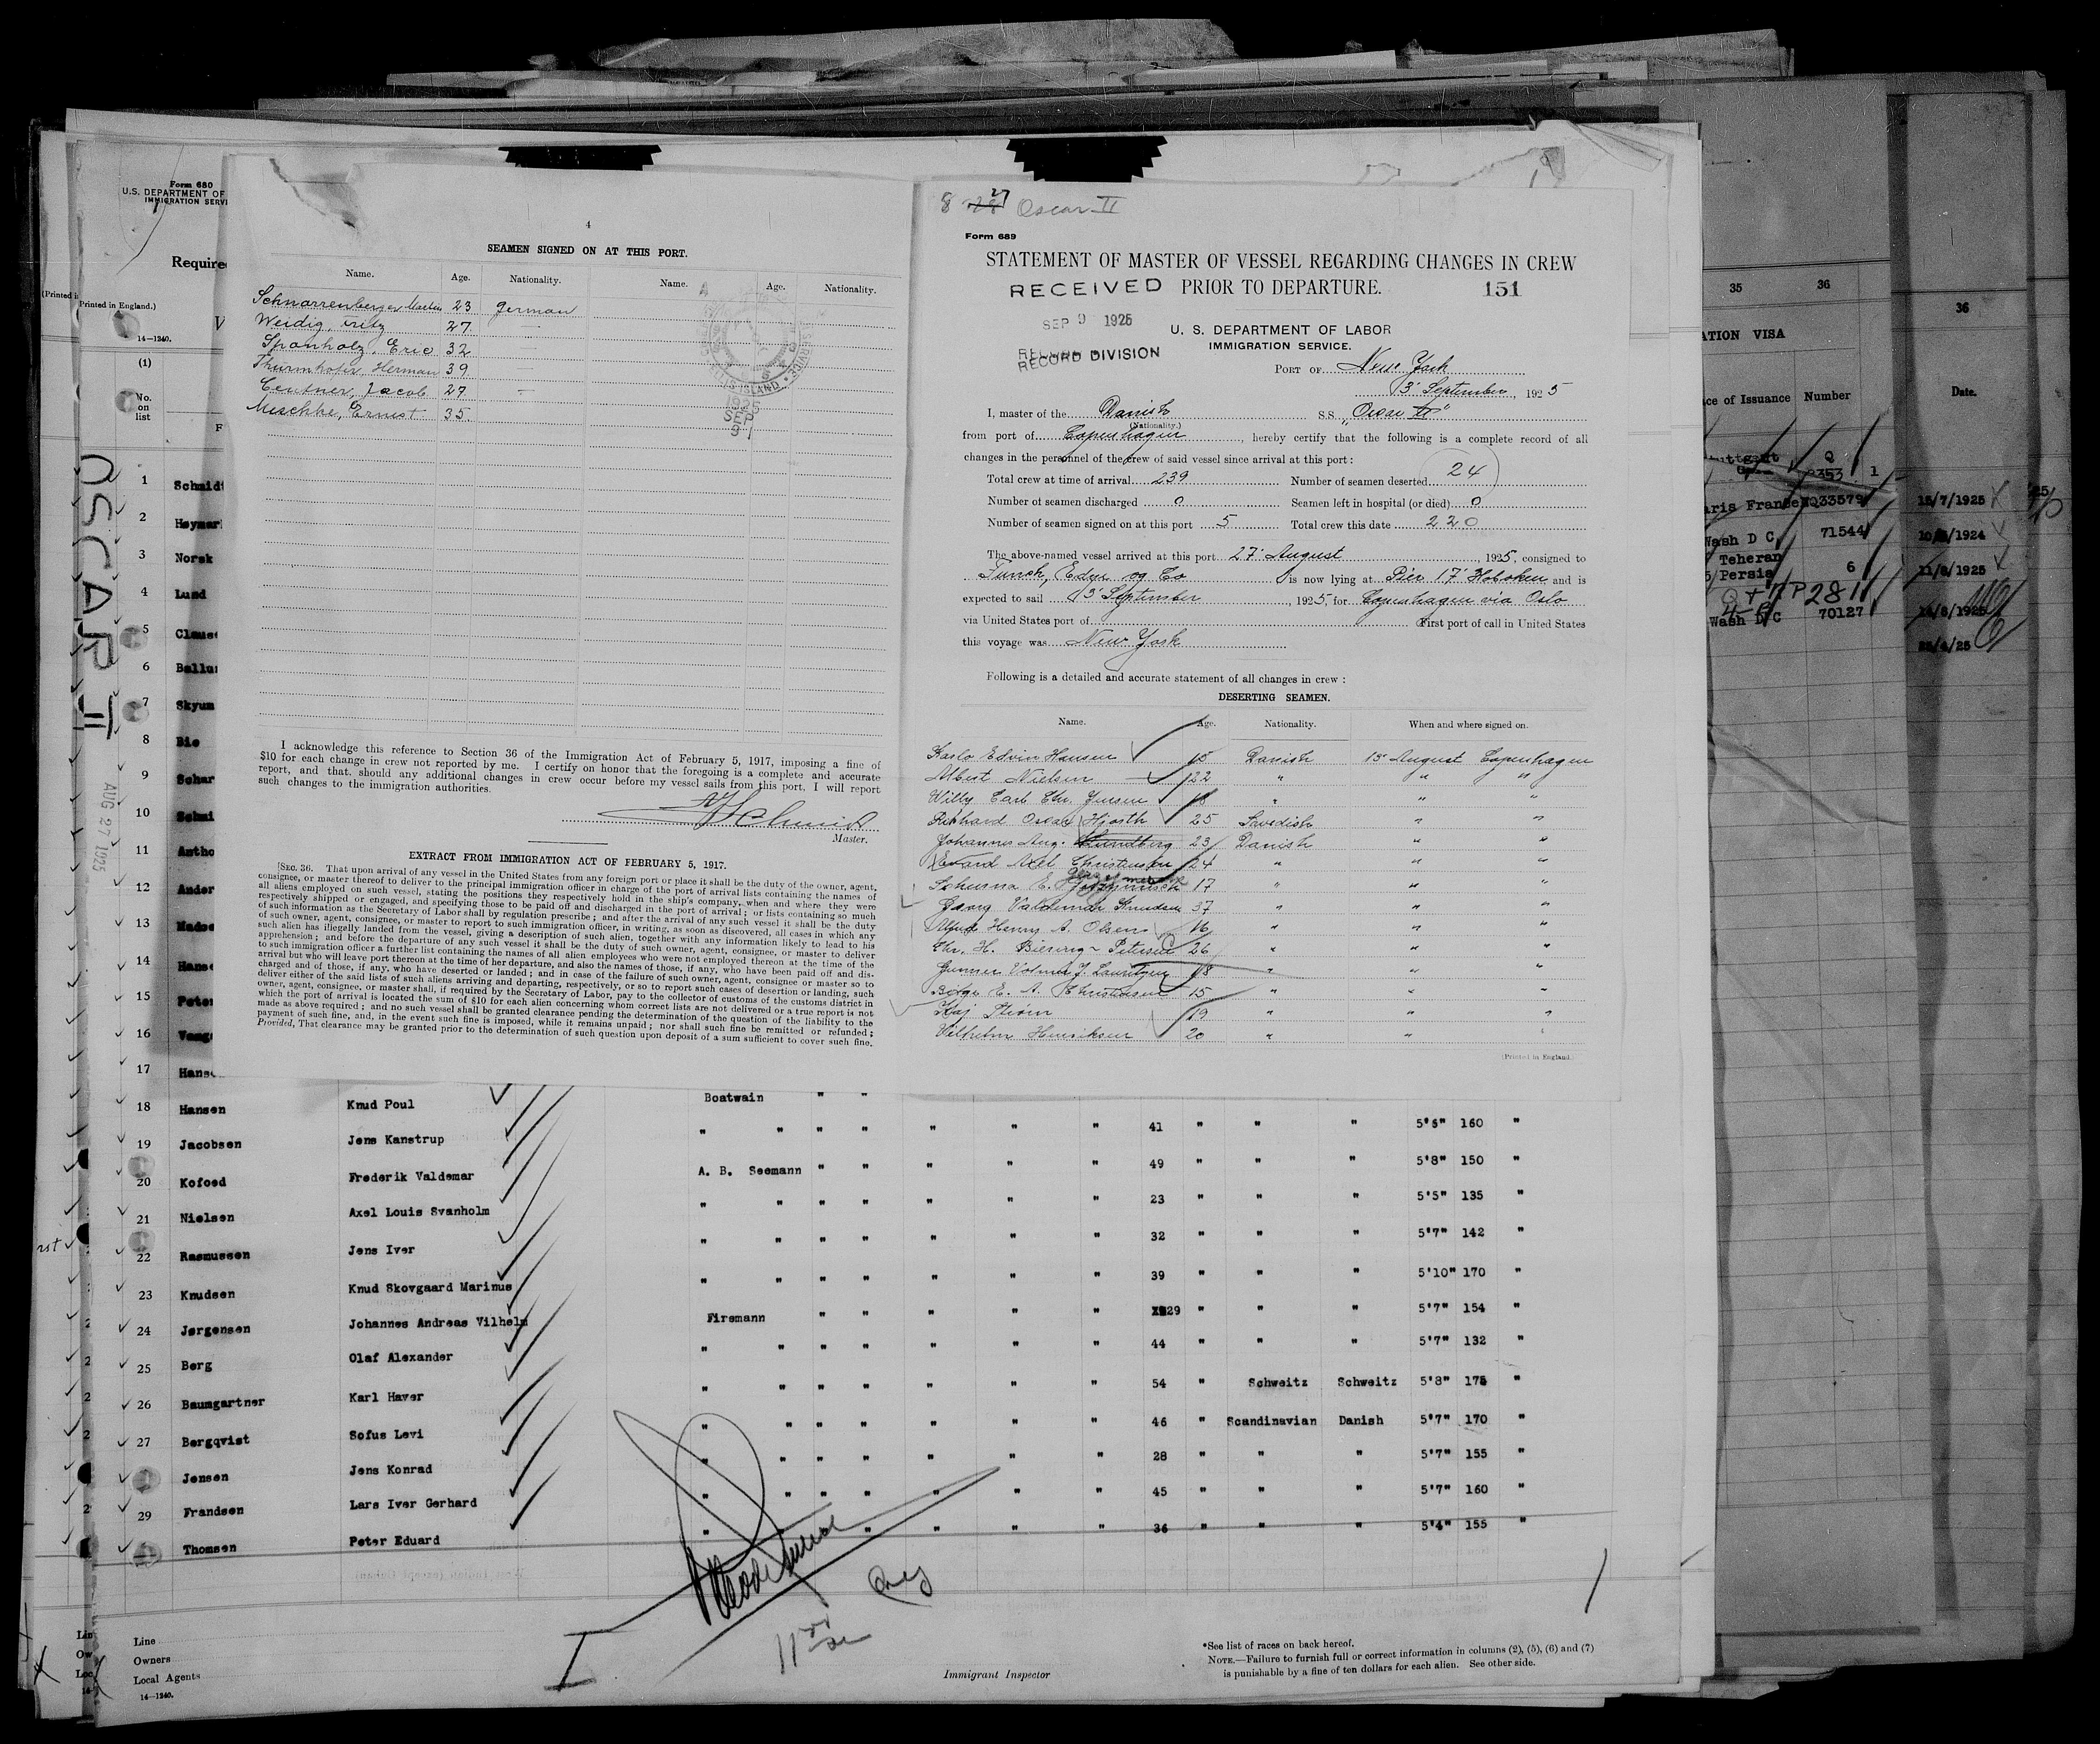 Form 680
U.S. DEPARTMENT OF
IMMIGRATION SERVI
Require
(Printed i
Printed in England.)
V
14—1240.
(1)
No.
on
list
F
OSCAR II
AUG 27 1925
1 Schmidt
2 Heymar
3 Norsk
4 Lund
5 Claus
6 Ballu
7 Skyum
8 Bie
9 Schar
10 Schmi
11 Antho
12 Ander
13 Madse
14 Hans
15 Peter
16 Vang
17 Hans
4
SEAMEN SIGNED ON AT THIS PORT.
Name. Age. Nationality. Name. Age. Nationality.
Schnarrenberger Martin 23 German
Weidig, Fritz 27 —
Spanholz, Eric 32 —
Thurmhofer, Herman 39 —
Centner, Jacob 27 —
Mischke, Ernest 35
I acknowledge this reference to Section 36 of the Immigration Act of February 5, 1917, imposing a fine of
$10 for each change in crew not reported by me. I certify on honor that the foregoing is a complete and accurate
report, and that should any additional changes in crew occur before my vessel sails from this port, I will report
such changes to the immigration authorities.
Master.
EXTRACT FROM IMMIGRATION ACT OF FEBRUARY 5, 1917.
[SEC. 36. That upon arrival of any vessel in the United States from any foreign port or place it shall be the duty of the owner, agent,
consignee, or master thereof to deliver to the principal immigration officer in charge of the port of arrival lists containing the names of
all aliens employed on such vessel, stating the positions they respectively hold in the ship's company, when and where they were
respectively shipped or engaged, and specifying those to be paid off and discharged in the port of arrival; or lists containing so much
of such information as the Secretary of Labor shall by regulation prescribe; and after the arrival of any such vessel it shall be the duty
of such owner, agent, consignee, or master to report to such immigration officer, in writing, as soon as discovered, all cases in which any
such alien has illegally landed from the vessel, giving a description of such alien, together with any information likely to lead to his
apprehension; and before the departure of any such vessel it shall be the duty of such owner, agent, consignee, or master to deliver
to such immigration officer a further list containing the names of all alien employees who were not employed thereon at the time of the
arrival but who will leave port thereon at the time of her departure, and also the names of those, if any, who have been paid off and dis-
charged and of those, if any, who have deserted or landed; and in case of the failure of such owner, agent, consignee or master so to
deliver either of the said lists of such aliens arriving and departing, respectively, or so to report such cases of desertion or landing, such
owner, agent, consignee, or master shall, if required by the Secretary of Labor, pay to the collector of customs of the customs district in
which the port of arrival is located the sum of $10 for each alien concerning whom correct lists are not delivered or a true report is not
made as above required; and no such vessel shall be granted clearance pending the determination of the question of the liability to the
payment of such fine, and, in the event such fine is imposed, while it remains unpaid; nor shall such fine be remitted or refunded;
Provided, That clearance may be granted prior to the determination of such question upon deposit of a sum sufficient to cover such fine.
8 28 27 Oscar II
Form 689
STATEMENT OF MASTER OF VESSEL REGARDING CHANGES IN CREW
RECEIVED PRIOR TO DEPARTURE. 151
SEP 9 1925
U. S. DEPARTMENT OF LABOR
IMMIGRATION SERVICE.
RECORD DIVISION
PORT OF New York
3' September, 1925
I, master of the Danish S.S. „Oscar II"
(Nationality.)
from port of Copenhagen, hereby certify that the following is a complete record of all
changes in the personnel of the crew of said vessel since arrival at this port:
Total crew at time of arrival 239 Number of seamen deserted 24
Number of seamen discharged 0 Seamen left in hospital (or died) 0
Number of seamen signed on at this port 5 Total crew this date 220
The above-named vessel arrived at this port 27' August, 1925, consigned to
Funch, Edye og Co is now lying at Pier 17' Hoboken and is
expected to sail 3' September, 1925, for Copenhagen via Oslo
via United States port of First port of call in United States
this voyage was New York
Following is a detailed and accurate statement of all changes in crew:
DESERTING SEAMEN.
Name. Age. Nationality. When and where signed on.
Karlo Edvin Hansen 15 Danish 15 August Copenhagen
Albert Nielsen 22 " " "
Willy Carl Chr. Jensen 18 " " "
Richard Oscar Hjorth 25 Swedish " "
Johannes Aug. Lundberg 23 Danish " "
Evard Axel Christensen 24 " " "
E. 17 " " "
Georg Valdemar Knudsen 37 " " "
Alfred Henry A. Olsen 16 " " "
Chr. H. Biering-Petersen 26 " " "
Gunner Volmer J. Lauritzen 18 " " "
Børge E. A. Christensen 15 " " "
Kaj Thorn 19 " " "
Vilhelm Henriksen 20 " " "
(Printed in England.)
35 36
ATION VISA
ce of Issuance Number
36
Date.
tuttgart
2353 1
aris France Q33579 15/7/1925
Wash D C 71544 10/ /1924
Teheran
Persia 6 11/8/1925
P281
Wash D C 70127 14/8/1925
25/4/25
18 Hansen Knud Poul Boatwain " "
19 Jacobsen Jens Kanstrup " " " " " " " 41 " " " 5'6" 160 "
20 Kofoed Frederik Valdemar A. B. Seemann " " " " " 49 " " " 5'8" 150 "
21 Nielsen Axel Louis Svanholm " " " " " " " 23 " " " 5'5" 135 "
22 Rasmussen Jens Iver " " " " " " " 32 " " " 5'7" 142 "
23 Knudsen Knud Skovgaard Marinus " " " " " " " 39 " " " 5'10" 170 "
24 Jørgensen Johannes Andreas Vilhelm Firemann " " " " " 29 " " " 5'7" 154 "
25 Berg Olaf Alexander " " " " " " " 44 " " " 5'7" 132 "
26 Baumgartner Karl Haver " " " " " " " 54 " Schweitz Schweitz 5'8" 175 "
27 Bergqvist Sofus Levi " " " " " " " 46 " Scandinavian Danish 5'7" 170 "
Jensen Jens Konrad " " " " " " " 28 " " " 5'7" 155 "
29 Frandsen Lars Iver Gerhard " " " " " " " 45 " " " 5'7" 160 "
Thomsen Peter Eduard " " " " " " " 36 " " " 5'4" 155 "
Line
Owners
Local Agents
14—1240.
Immigrant Inspector
*See list of races on back hereof.
NOTE.—Failure to furnish full or correct information in columns (2), (5), (6) and (7)
is punishable by a fine of ten dollars for each alien. See other side.